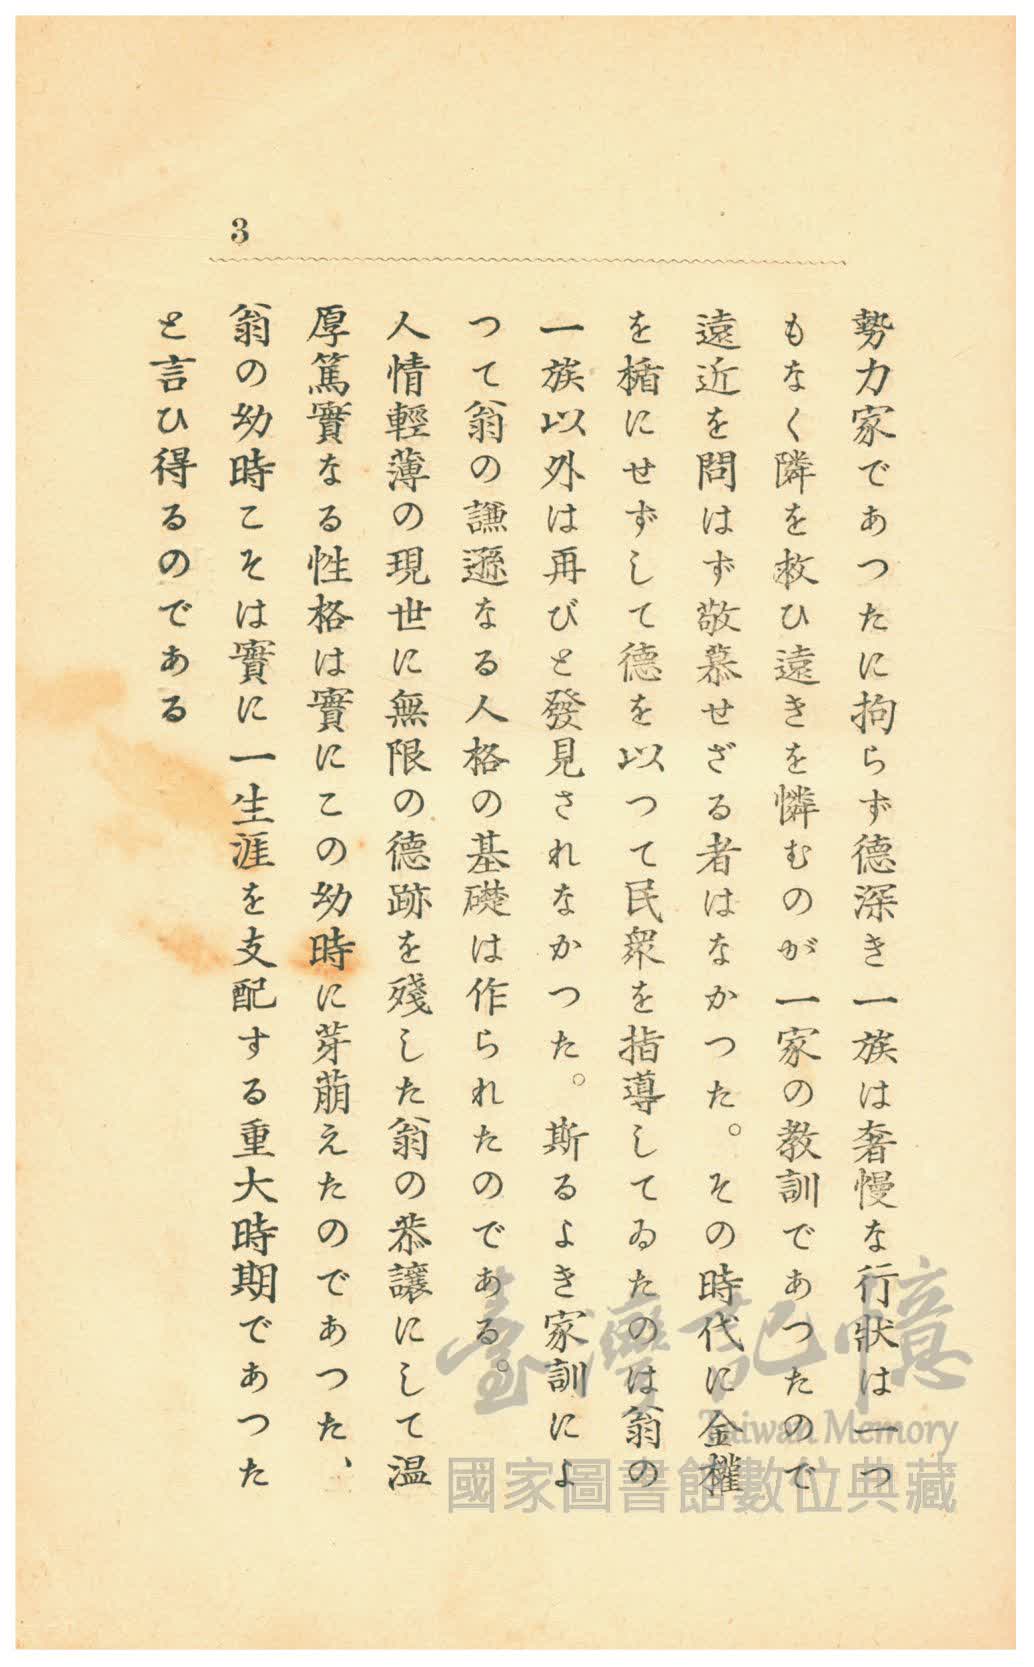 3
勢力家であつたに拘らず德深き一族は奢慢な行狀は一つ
もなく隣を救ひ遠きを憐むのが一家の教訓であつたので
遠近を問はず敬慕せざる者はなかつた。その時代に金權
を楯にせずして德を以つて民衆を指導してゐたのは翁の
一族以外は再びと發見されなかつた。斯るよき家訓によ
つて翁の謙遜なる人格の基礎は作られたのである。
人情輕薄の現世に無限の德跡を殘した翁の恭讓にして温
厚篤實なる性格は實にこの幼時に芽萠えたのであつた、
翁の幼時こそは實に一生涯を支配する重大時期であつた
と言ひ得るのである
臺灣記憶
Taiwan Memory
國家圖書館數位典藏